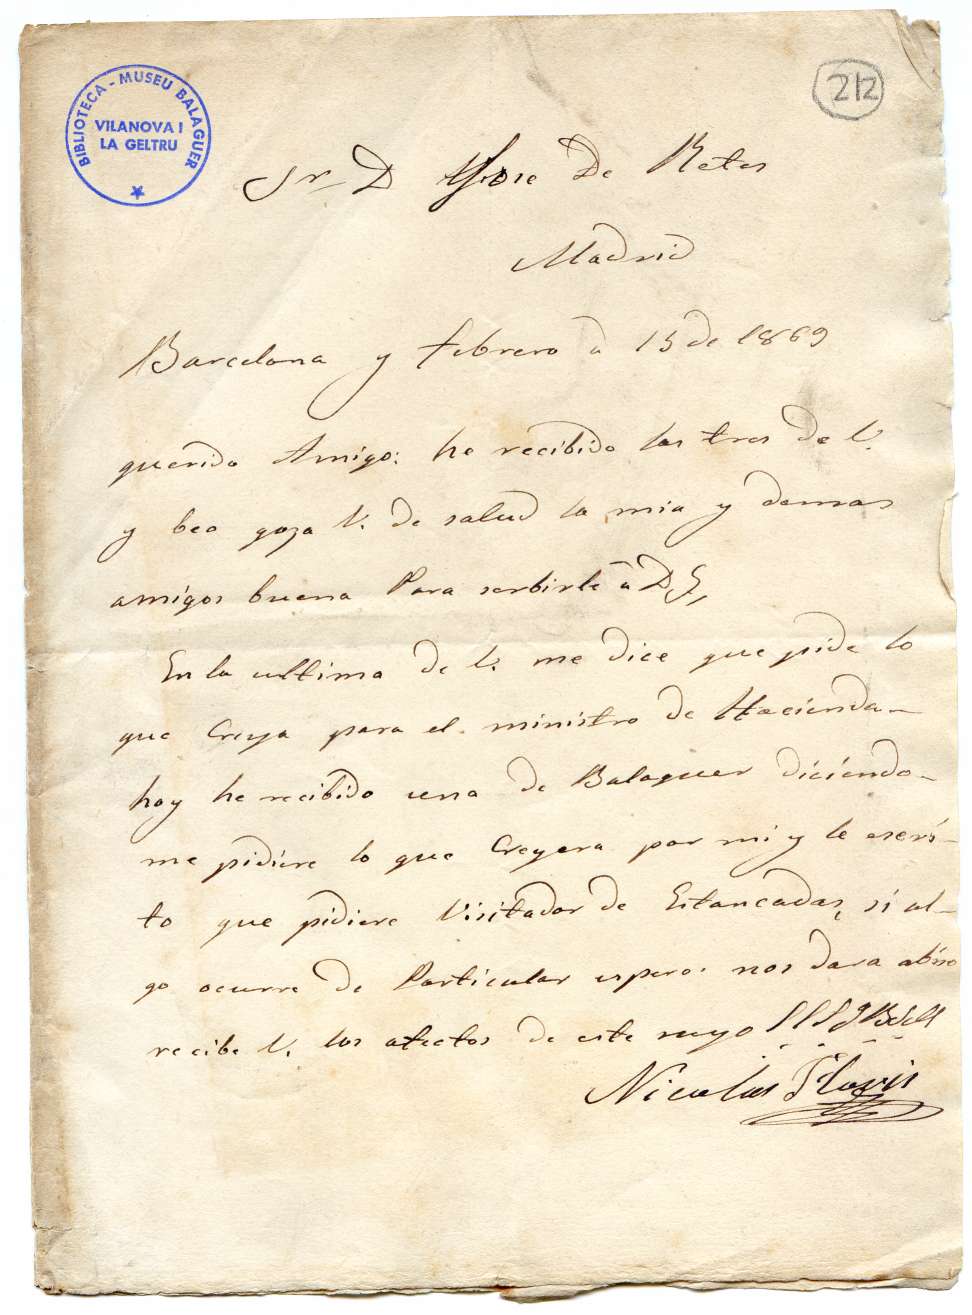 BIBLIOTECA - MUSEU BALAGUER
VILANOVA I
LA GELTRU
212
Sr. D Jose De Retes
Madrid
Barcelona y febrero a 15 de 1869
querido Amigo: he recibido las tres de V.
y beo goza V. de salud la mia y demas
amigos buena Para serbirle a D. G,
En la ultima de V. me dice que pide lo
que Creya para el ministro de Hacienda
hoy he recibido una de Balaguer diciendo-
me pidiere lo que Creyera por mi y le escri-
to que pidiere Visitador de Estancadas, si al-
go ocurre de Particular espero nos dara abiso
recibe V. los afectos de este suyo
Nicolas